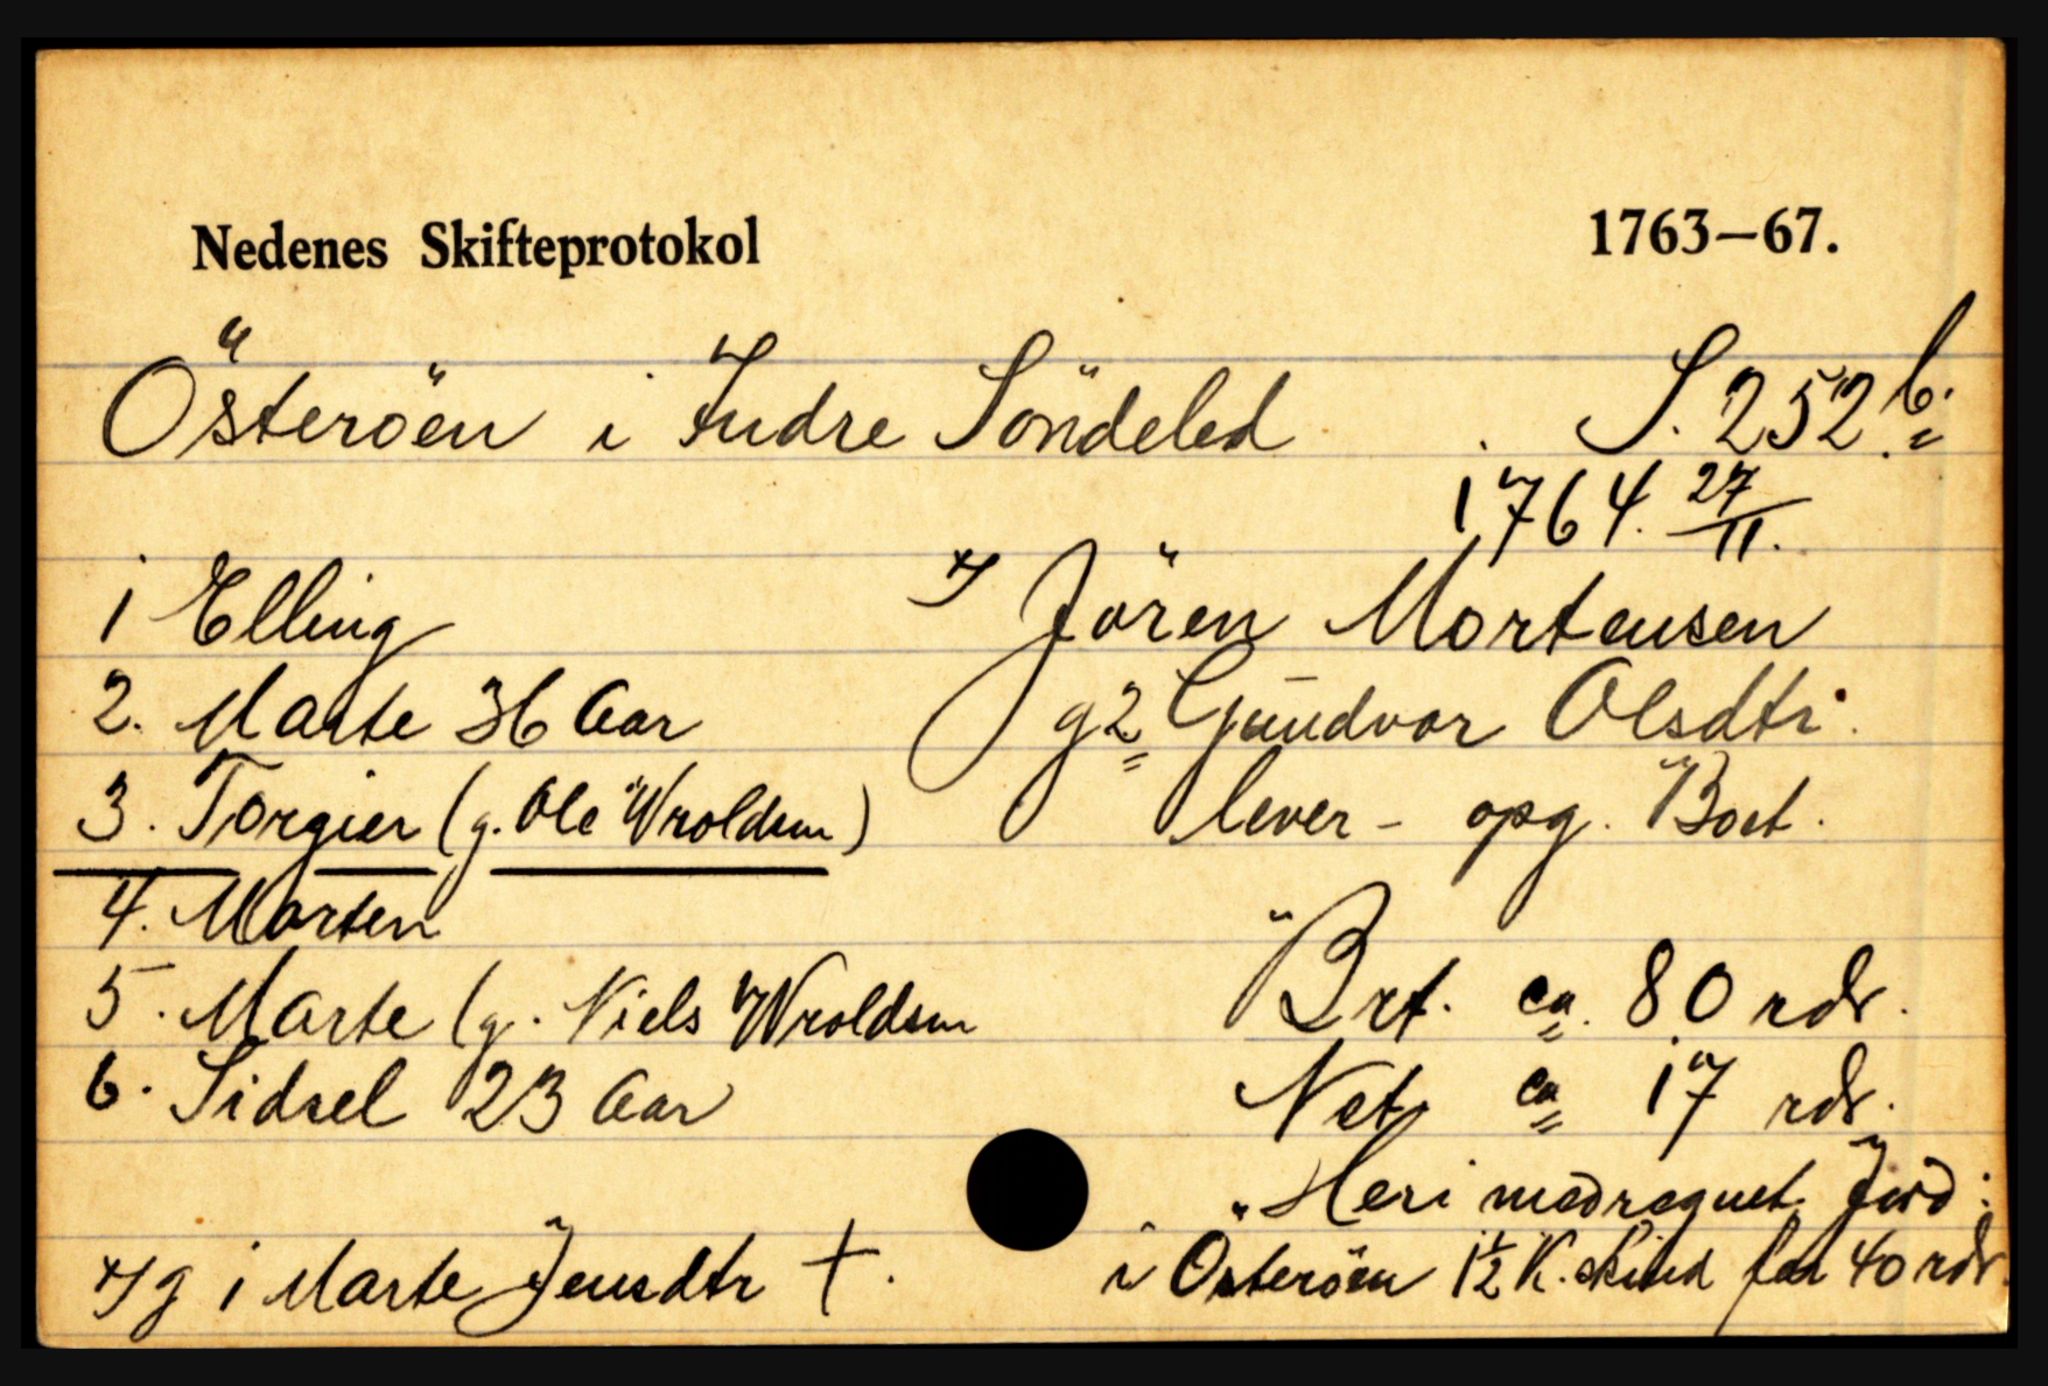 Nedenes Skifteprotokol 1763—67.
Österöen i Indre Söndeled S. 252 b.
1764. 27/11.
1 Elling
2. Marte 36 Aar
3. Torgier (g. Ole Wroldsen)
4. Morten
5. Marte (g. Niels Wroldsen
6. Sidsel 23 Aar
x) g 1 Marte Jensdtr †.
x) Jören Mortensen
g 2 Gundvor Olsdtr.
lever - opg. Boet.
Brt. ca. 80 rdr.
Net. ca 17 rdr.
Heri medregnet Jord:
i Österöen 1½ K. skind for 40 rdr.